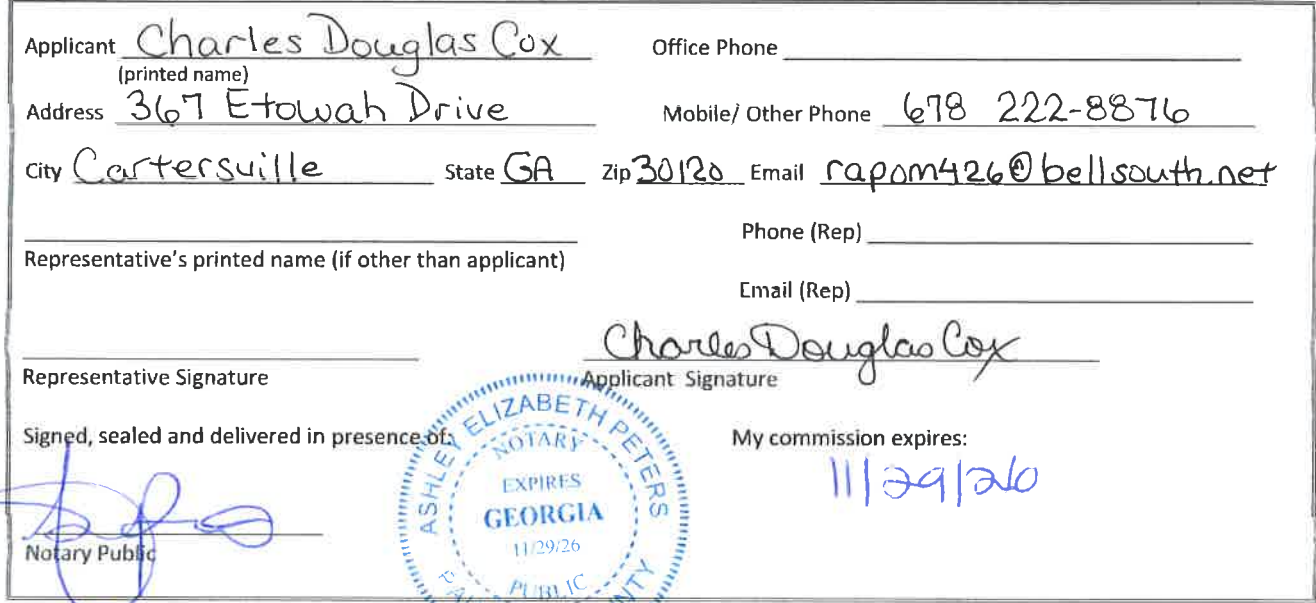 Applicant Charles Douglas Cox Office Phone
(printed name)
Address 367 Etowah Drive Mobile/ Other Phone 678 222-8876
City Cartersville State GA Zip 30120 Email rapom426@bellsouth.net
Phone (Rep)
Representative's printed name (if other than applicant)
Email (Rep)
Charles Douglas Cox
Representative Signature Applicant Signature
Signed, sealed and delivered in presence of: My commission expires:
11/29/26
Notary Public
ASHLEY ELIZABETH PETERS
NOTARY
EXPIRES
GEORGIA
11/29/26
PUBLIC